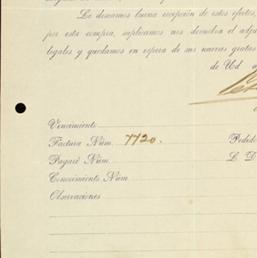 Le deseamos buena recepción de estos efectos,
por esta compra, suplicamos nos devuelva el adju
legales y quedamos en espera de sus nuevas gratas
de Ud.
Vencimiento
Factura Núm. 7720. Pedido
Pagaré Núm. L. D
Conocimiento Núm
Observaciones